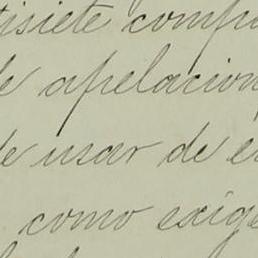 tisiete compu
de apelacion
de usar de e
como exige